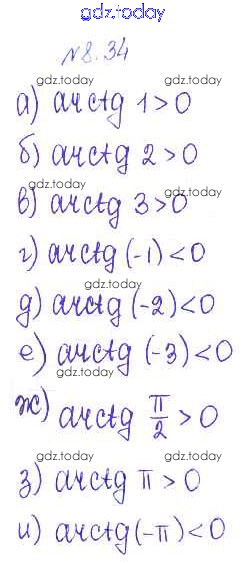 gdz.today
№8.34
gdz.today
а) arctg 1 > 0
gdz.today
б) arctg 2 > 0
gdz.today
в) arctg 3 > 0
gdz.today
г) arctg (-1) < 0
gdz.today
д) arctg (-2) < 0
gdz.today
е) arctg (-3) < 0
gdz.today
ж) arctg π/2 > 0
gdz.today
з) arctg π > 0
gdz.today
и) arctg (-π) < 0
gdz.today